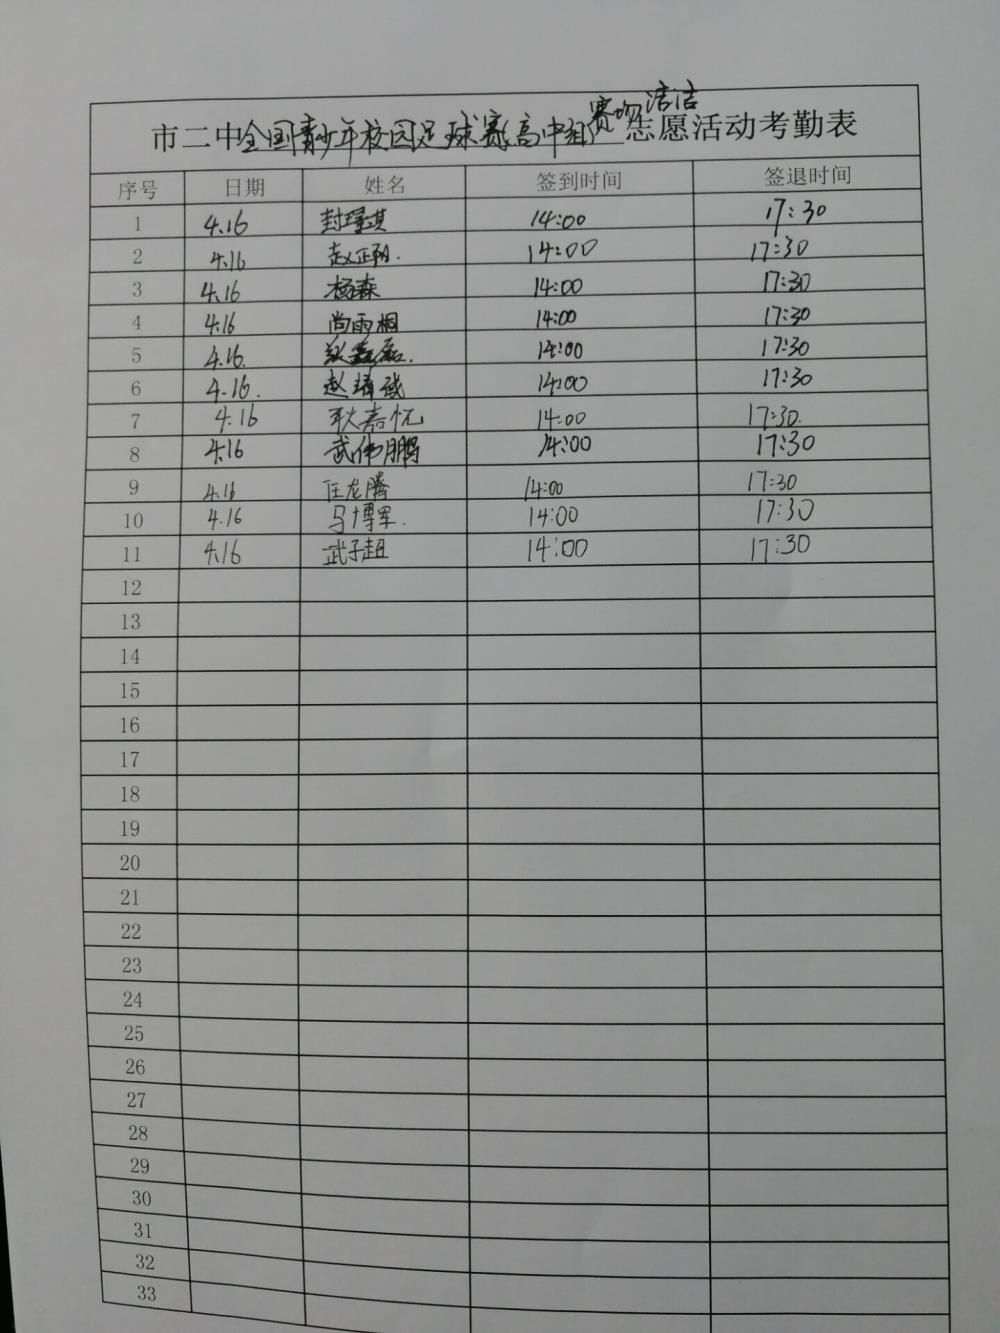 市二中全国青少年校园足球赛(高中组)赛场清洁志愿活动考勤表
序号 日期 姓名 签到时间 签退时间
1 4.16 封瑾淇 14:00 17:30
2 4.16 赵正朝. 14:00 17:30
3 4.16 杨森 14:00 17:30
4 4.16 尚雨桐 14:00 17:30
5 4.16. 鑫磊. 14:00 17:30
6 4.16. 赵 14:00 17:30
7 4.16 耿嘉忱 14:00 17:30.
8 4.16 武伟鹏 14:00 17:30
9 4.16 任龙腾 14:00 17:30
10 4.16 马博军. 14:00 17:30
11 4.16 武子超 14:00 17:30
12
13
14
15
16
17
18
19
20
21
22
23
24
25
26
27
28
29
30
31
32
33